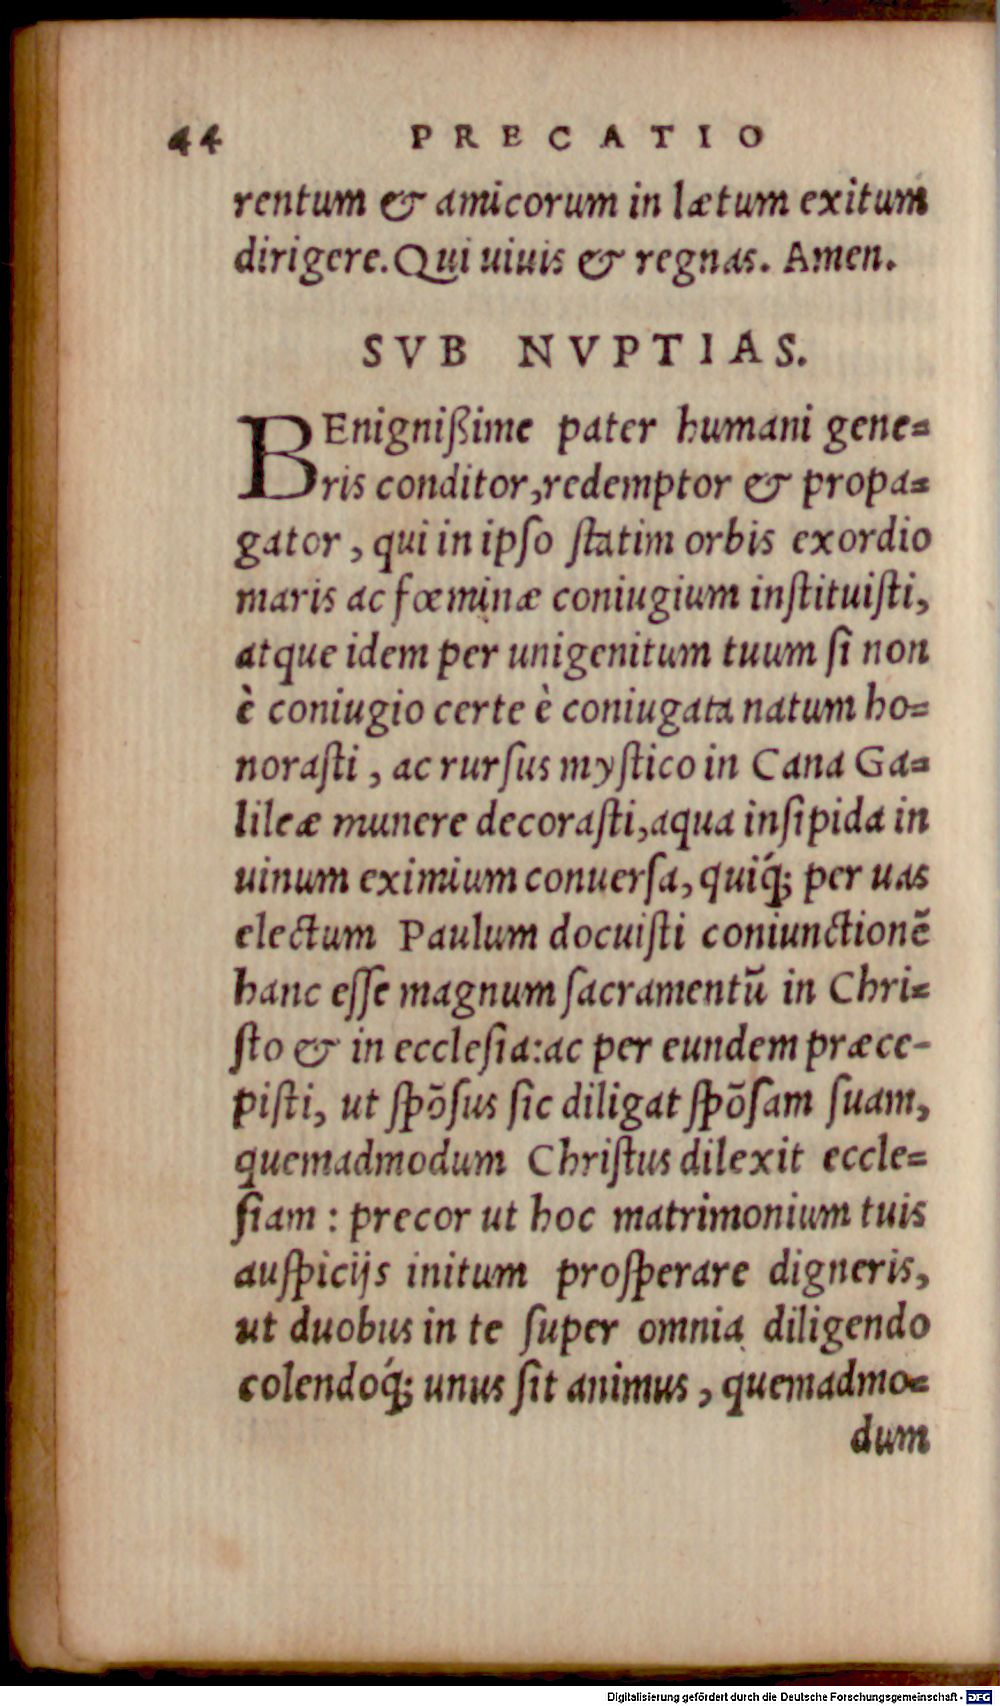 44 PRECATIO
rentum & amicorum in lætum exitum
dirigere. Qui uiuis & regnas. Amen.
SVB NVPTIAS.
BEnignißime pater humani gene=
ris conditor, redemptor & propa=
gator, qui in ipſo ſtatim orbis exordio
maris ac fœminæ coniugium inſtituiſti,
atque idem per unigenitum tuum ſi non
è coniugio certe è coniugata natum ho=
noraſti, ac rurſus myſtico in Cana Ga=
lileæ munere decoraſti, aqua inſipida in
uinum eximium conuerſa, quiq́; per uas
electum Paulum docuiſti coniunctionẽ
hanc eſſe magnum ſacramentũ in Chri=
ſto & in eccleſia: ac per eundem præce-
piſti, ut ſpõſus ſic diligat ſpõſam ſuam,
quemadmodum Chriſtus dilexit eccle=
ſiam : precor ut hoc matrimonium tuis
auſpicijs initum proſperare digneris,
ut duobus in te ſuper omnia diligendo
colendoq́; unus ſit animus, quemadmo=
dum
Digitalisierung gefördert durch die Deutsche Forschungsgemeinschaft - DFG